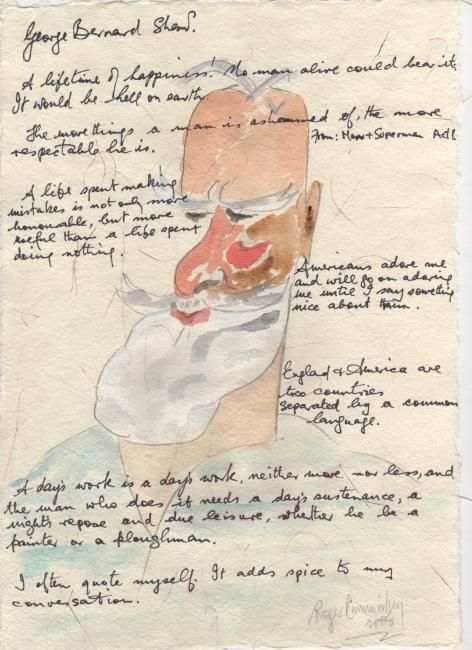 George Bernard Shaw.
A lifetime of happiness! No man alive could bear it.
It would be hell on earth.
The more things a man is ashamed of, the more
respectable he is.
From: Man + Superman Act 1
A life spent making
mistakes is not only more
honourable, but more
useful than a life spent
doing nothing.
Americans adore me
and will go on adoring
me until I say something
nice about them.
Englad & America are
two countries
separated by a common
language.
A day's work is a day's work, neither more nor less, and
the man who does it needs a day's sustenance, a
night's repose and due leisure, whether he be a
painter or a ploughman.
I often quote myself. It adds spice to my
conversation.
Roger Cummiskey